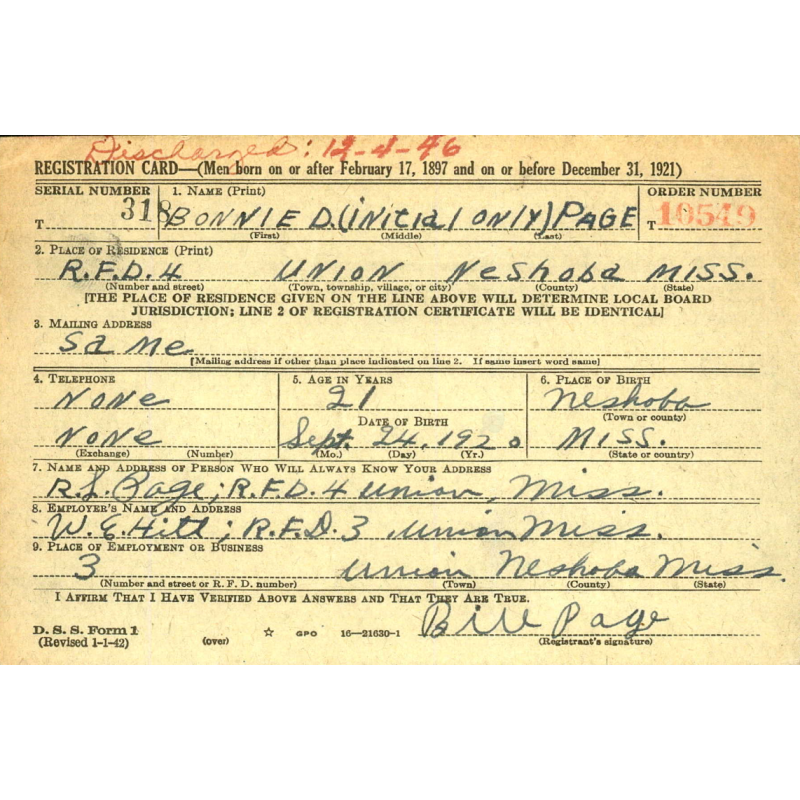 Discharged: 12-4-46
REGISTRATION CARD—(Men born on or after February 17, 1897 and on or before December 31, 1921)
SERIAL NUMBER 1. NAME (Print) ORDER NUMBER
T 318 BONNIE D. (initial only) PAGE T 10549
(First) (Middle) (Last)
2. PLACE OF RESIDENCE (Print)
R.F.D. 4 UNION Neshoba MISS.
(Number and street) (Town, township, village, or city) (County) (State)
[THE PLACE OF RESIDENCE GIVEN ON THE LINE ABOVE WILL DETERMINE LOCAL BOARD
JURISDICTION; LINE 2 OF REGISTRATION CERTIFICATE WILL BE IDENTICAL]
3. MAILING ADDRESS
Same
[Mailing address if other than place indicated on line 2. If same insert word same]
4. TELEPHONE 5. AGE IN YEARS 6. PLACE OF BIRTH
NONe 21 Neshoba
DATE OF BIRTH (Town or county)
NONe Sept. 24, 1920 MISS.
(Exchange) (Number) (Mo.) (Day) (Yr.) (State or county)
7. NAME AND ADDRESS OF PERSON WHO WILL ALWAYS KNOW YOUR ADDRESS
R.L. Page; R.F.D. 4 Union, Miss.
8. EMPLOYER'S NAME AND ADDRESS
W.E. Hitt; R.F.D. 3 Union Miss.
9. PLACE OF EMPLOYMENT OR BUSINESS
3 Union Neshoba Miss.
(Number and street or R. F. D. number) (Town) (County) (State)
I AFFIRM THAT I HAVE VERIFIED ABOVE ANSWERS AND THAT THEY ARE TRUE.
Bill Page
D. S. S. Form 1
(Revised 1-1-42) (over) ☆ GPO 16—21630-1 (Registrant's signature)